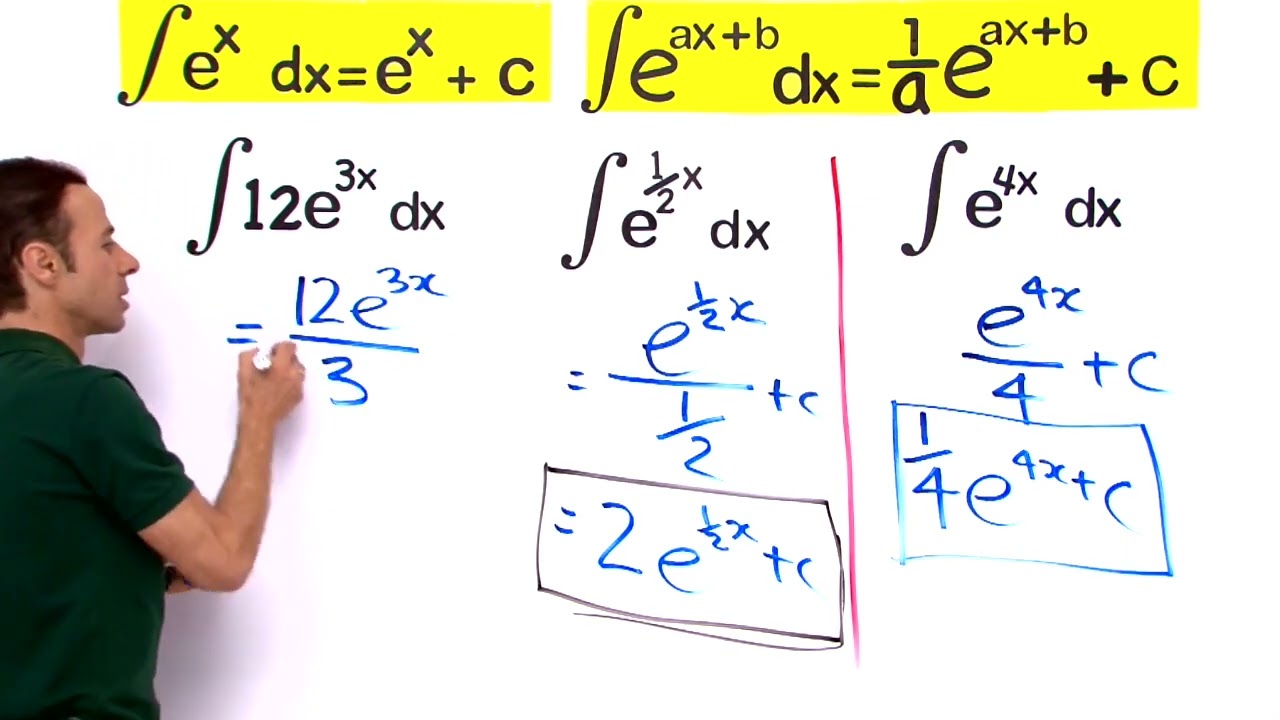 ∫eˣ dx = eˣ + c
∫e^(ax+b) dx = 1/a e^(ax+b) + c
∫12e^(3x) dx
= 12e^(3x)/3
∫e^(1/2 x) dx
= e^(1/2 x)/(1/2) + c
= 2e^(1/2 x) + c
∫e^(4x) dx
e^(4x)/4 + c
1/4 e^(4x) + c